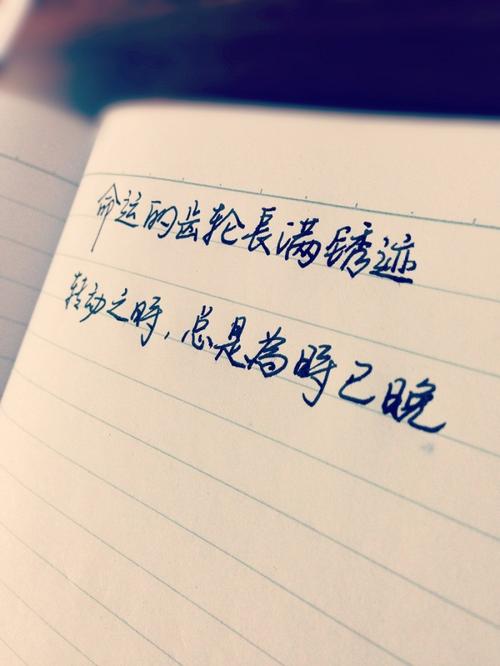 命运的齿轮長满锈迹
转动之時，总是為時已晚